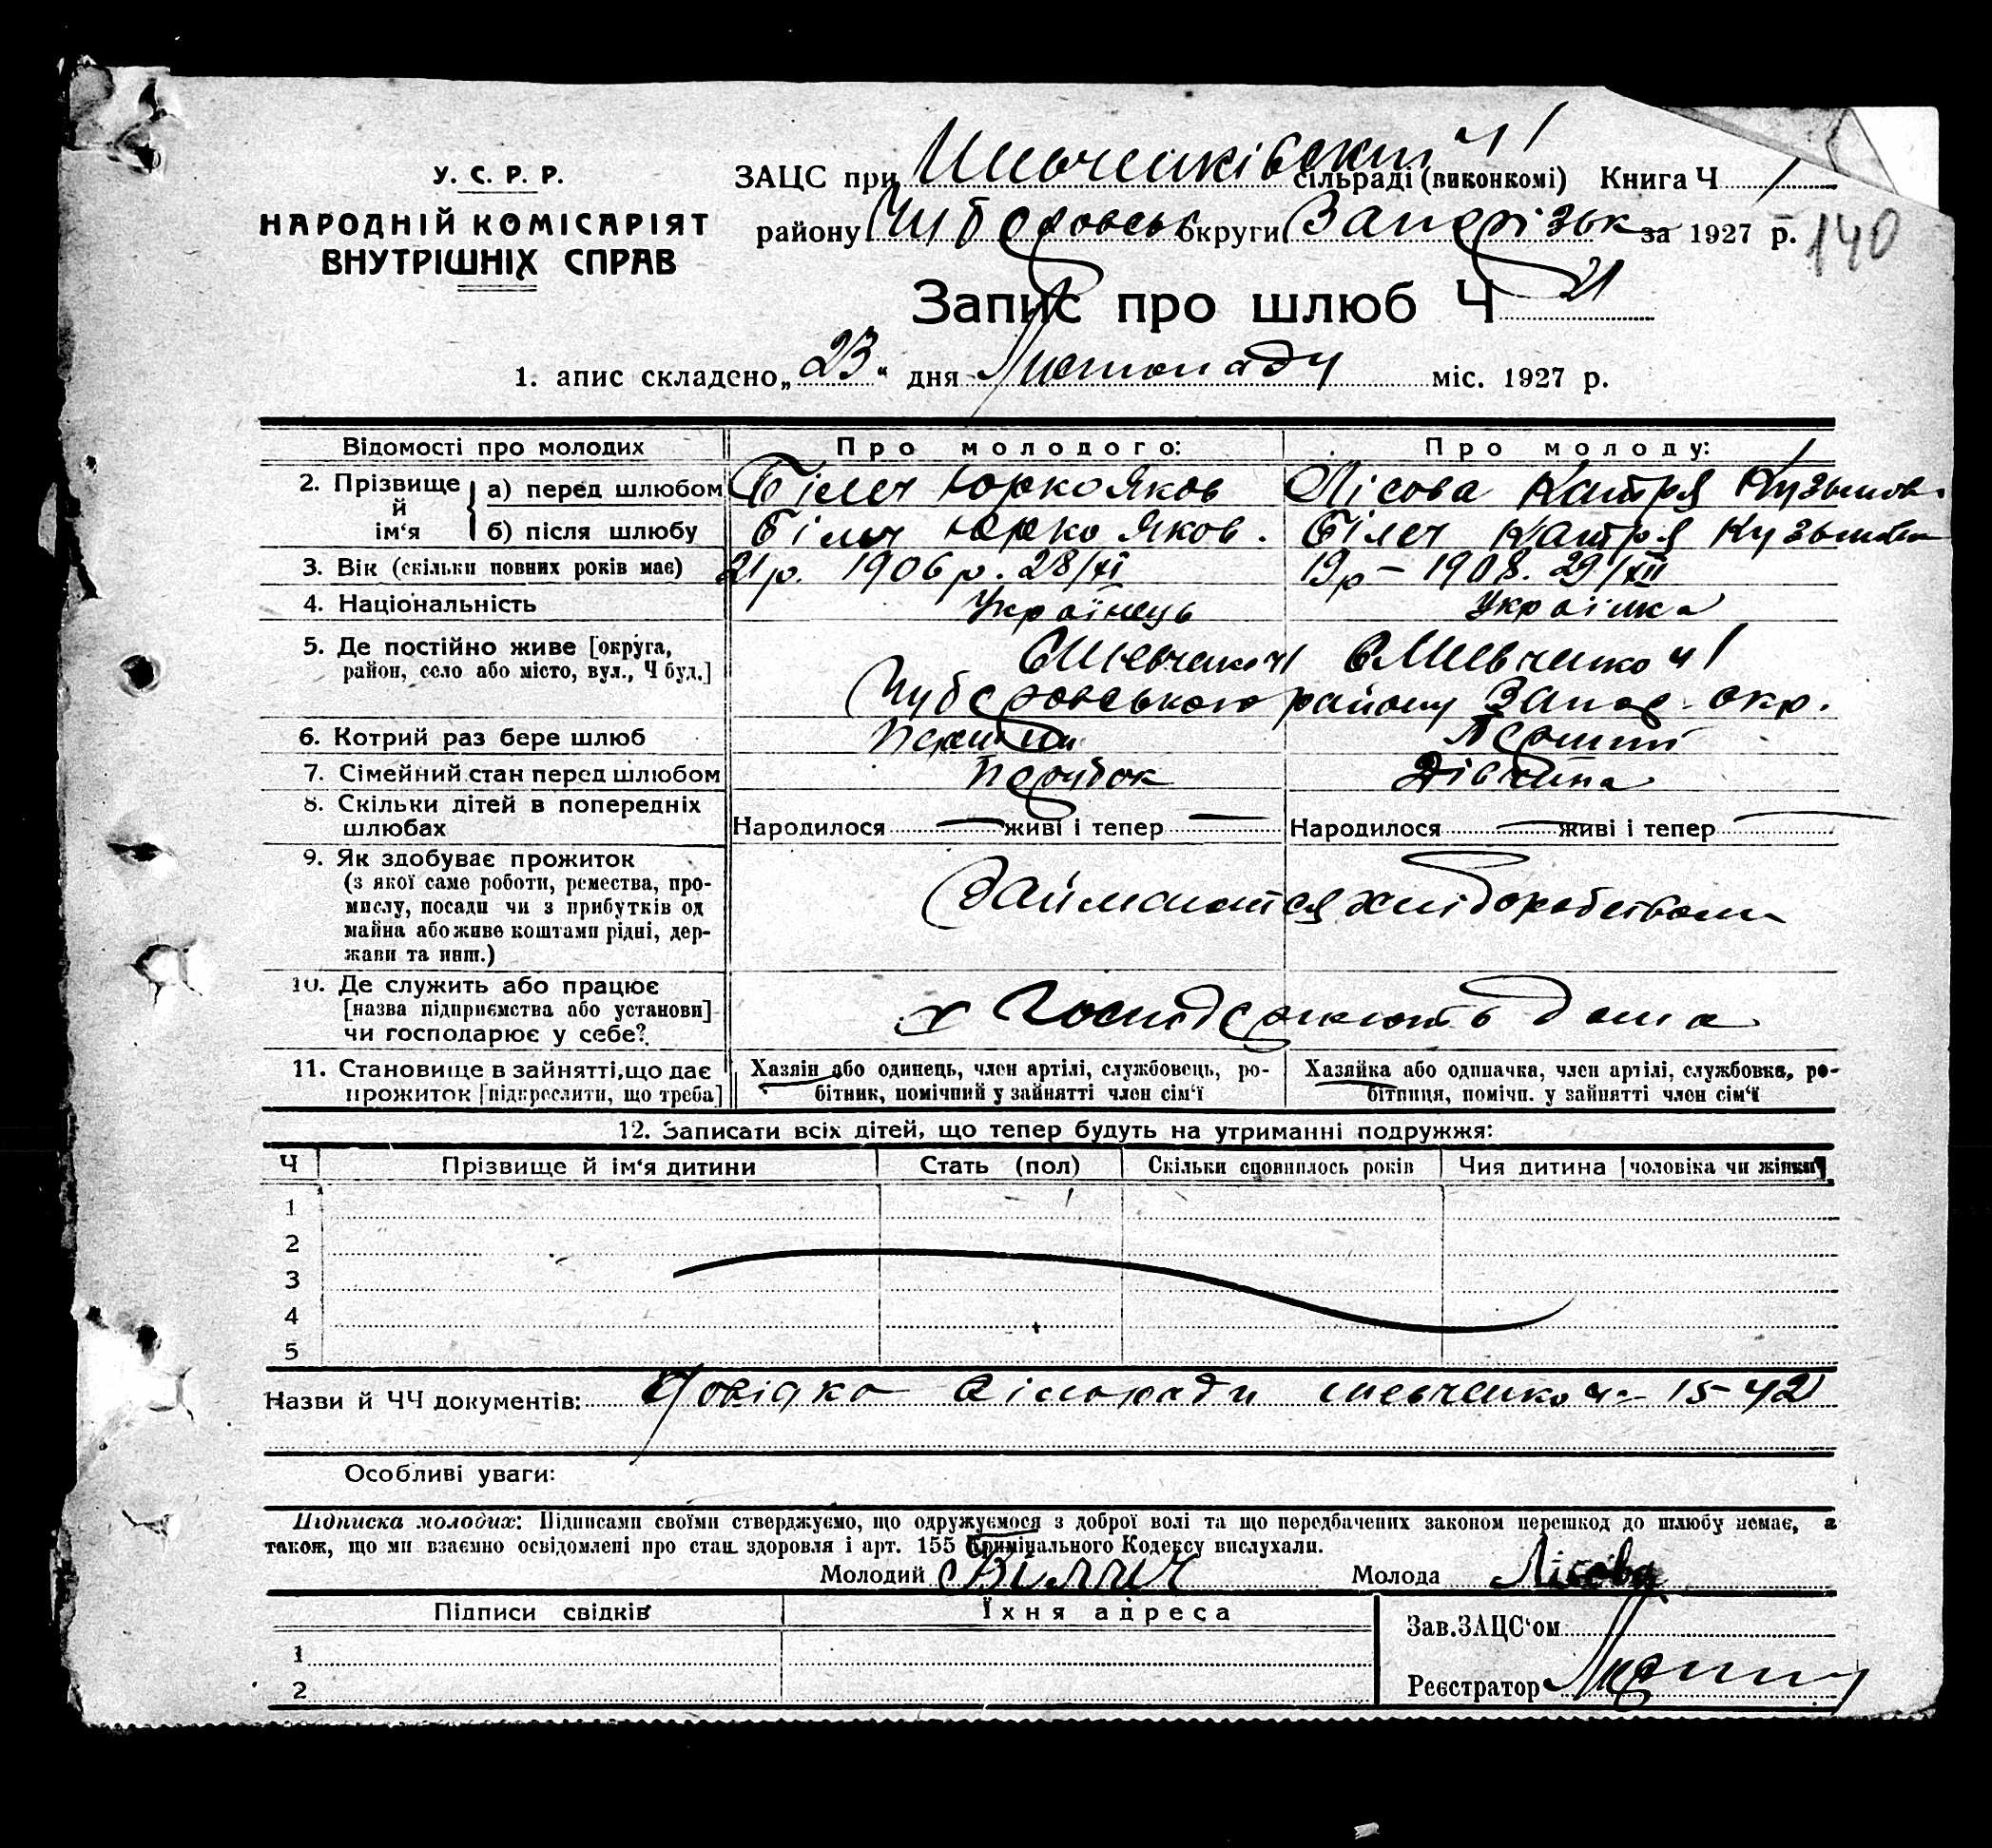 У. С. Р. Р.
НАРОДНІЙ КОМІСАРІЯТ
ВНУТРІШНІХ СПРАВ
ЗАЦС при Шевченківский ч 1 сільраді (виконкомі) Книга Ч 1
району Чубарівськ округи Запорізьк за 1927 р.
140
Запис про шлюб Ч 21
1. апис складено „23“ дня Листопаду міс. 1927 р.
Відомості про молодих Про молодого: Про молоду:
2. Прізвище й ім‘я
а) перед шлюбом Білич Юрко Яков Лісова Катря Кузьмов.
б) після шлюбу Білич Юрко Яков. Білич Катря Кузьмов
3. Вік (скільки повних років має) 21 р. 1906 р. 28/XI 19 р – 1908. 29/XII
4. Національність Українець Украінка
5. Де постійно живе [округа, С Шевченко ч 1 С Шевченко ч 1
район, село або місто, вул., Ч буд.] Чубаровського району Запор. окр.
6. Котрий раз бере шлюб Перший Перший
7. Сімейний стан перед шлюбом Парубок Дівчина
8. Скільки дітей в попередніх
шлюбах Народилося — живі і тепер — Народилося — живі і тепер —
9. Як здобуває прожиток
(з якої саме роботи, ремества, про-
мислу, посади чи з прибутків од Займаются хліборобством
майна або живе коштами рідні, дер-
жави та инш.)
10. Де служить або працює
[назва підприємства або установи] Господарюють дома
чи господарює у себе?
11. Становище в зайнятті, що дає Хазяін або одинець, член артілі, службовець, ро- Хазяйка або одиначка, член артілі, службовка, ро-
прожиток [підкреслити, що треба] бітник, помічний у зайнятті член сім‘ї бітниця, помічн. у зайнятті член сім‘ї
12. Записати всіх дітей, що тепер будуть на утриманні подружжя:
Ч Прізвище й ім‘я дитини Стать (пол) Скільки сповнилось років Чия дитина [чоловіка чи жінки]
1
2
3
4
5
Назви й ЧЧ документів: Довідка Сільради Шевченко ч 15-42
Особливі уваги:
Підписка молодих: Підписами своїми стверджуємо, що одружуємося з доброї волі та що передбачених законом перешкод до шлюбу немає, а
також, що ми взаємно освідомлені про стан здоровля і арт. 155 Кримінального Кодексу вислухали.
Молодий Білич Молода Лісова
Підписи свідків Їхня адреса
Зав.ЗАЦС‘ом
1
Реєстратор
2